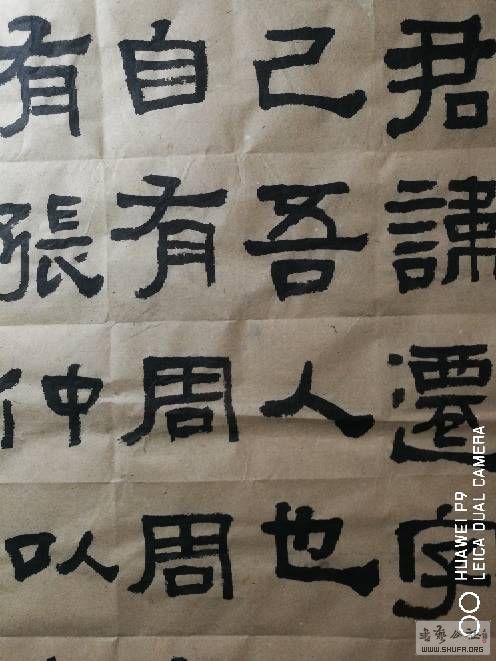 君諱遷字
己吾人也
自有周周
有張仲以
HUAWEI P9
LEICA DUAL CAMERA
书艺公社
WWW.SHUFA.ORG